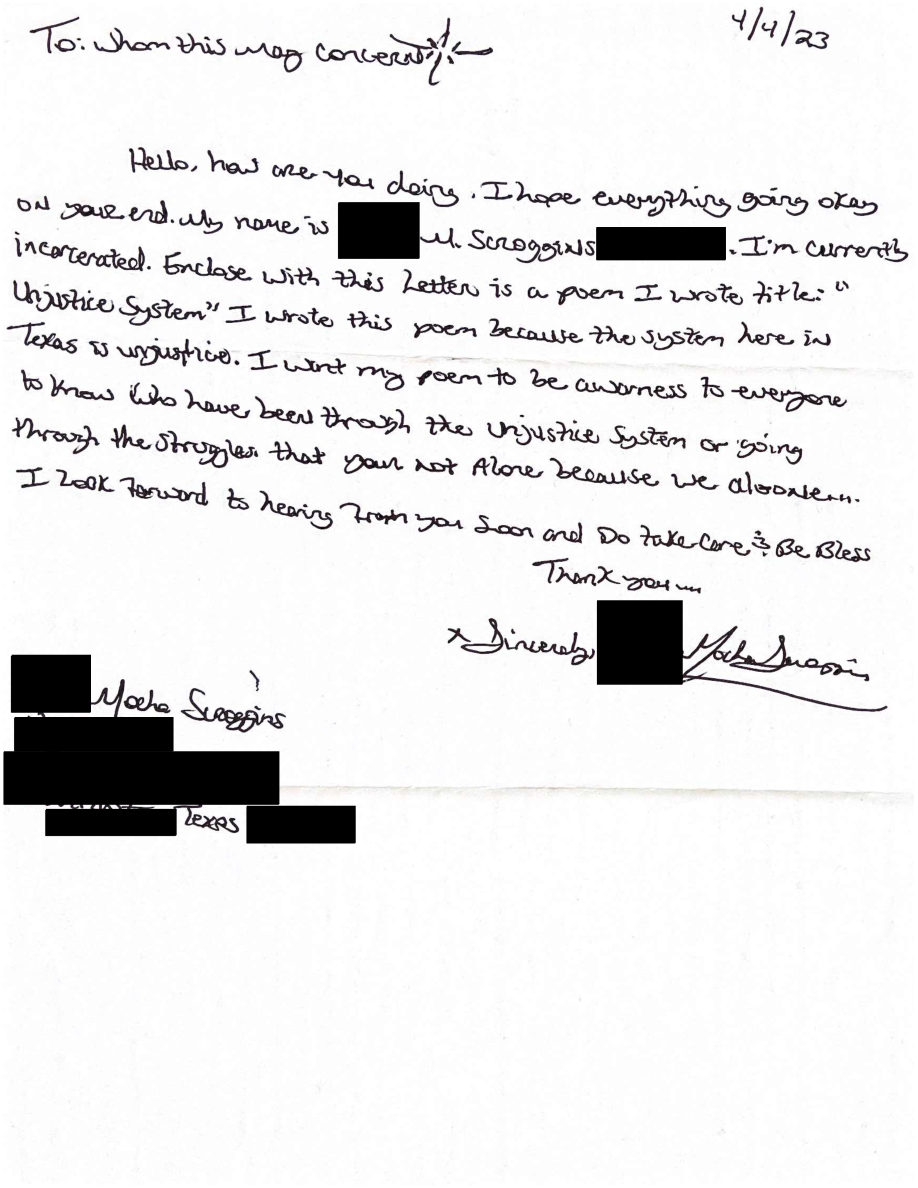 4/4/23
To: Whom this may concern
Hello, how are you doing. I hope everything going okay
on your end. My name is M. Scroggins . I'm currently
incarcerated. Enclose with this Letter is a poem I wrote title: "
Unjustice System" I wrote this poem because the system here in
Texas is unjustice. I want my poem to be awarness to everyone
to know who have been through the Unjustice System or going
through the struggles that your not Alone because we
I Look Forward to hearing From you Soon and Do take Care & Be Bless
Thank you
x Sincerely, Mocha Scroggins
Mocha Scroggins
Texas